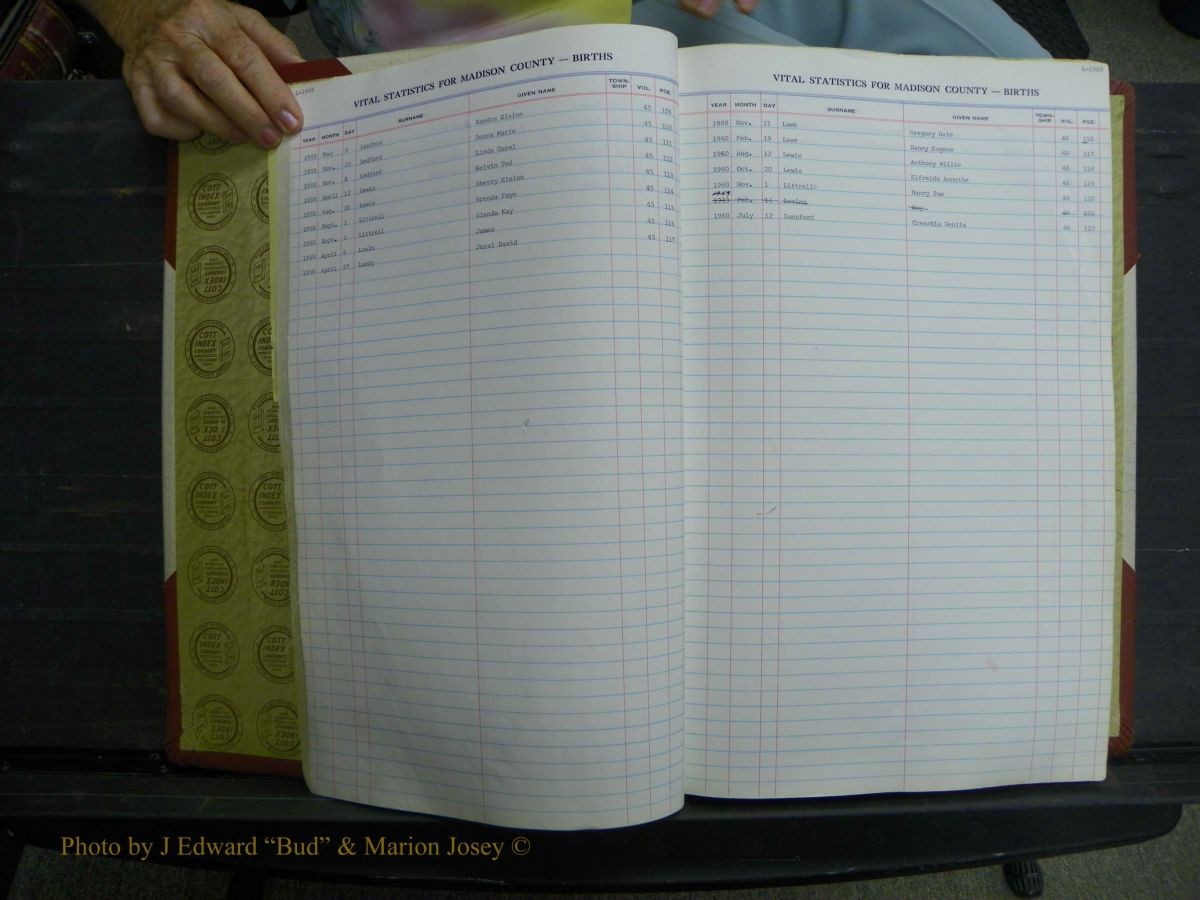 L-1959
VITAL STATISTICS FOR MADISON COUNTY — BIRTHS
YEAR MONTH DAY SURNAME GIVEN NAME TOWN-SHIP VOL. PGE.
1959 May 5 Sandra Elaine 45 109
1959 Nov. 23 Ledford Donna Marie 45 110
1959 Nov. 8 Ledford Linda Carol 45 111
1959 April 12 Lewis Kelvin Ted 45 112
1959 Aug. 20 Lewis Sherry Elaine 45 113
1959 Sept. 3 Littrell Brenda Faye 45 114
1959 Sept. 1 Littrell Glenda Kay 45 115
1959 April 6 Lovin James 45 116
1959 April 27 Lundy Jeral David 45 117
L-1960
VITAL STATISTICS FOR MADISON COUNTY — BIRTHS
YEAR MONTH DAY SURNAME GIVEN NAME TOWN-SHIP VOL. PGE.
1960 Nov. 11 Lamb Gregory Dale 46 116
1960 Feb. 19 Laws Danny Eugene 46 117
1960 Aug. 12 Lewis Anthony Willie 46 118
1960 Oct. 20 Lewis Elfreida Annette 46 119
1960 Nov. 1 Littrell Nancy Sue 46 120
Feb. 14 Loving Roy 46 121
1960 July 12 Lunsford Creastia Denita 46 122
COTT INDEX COMPANY
Photo by J Edward “Bud” & Marion Josey ©